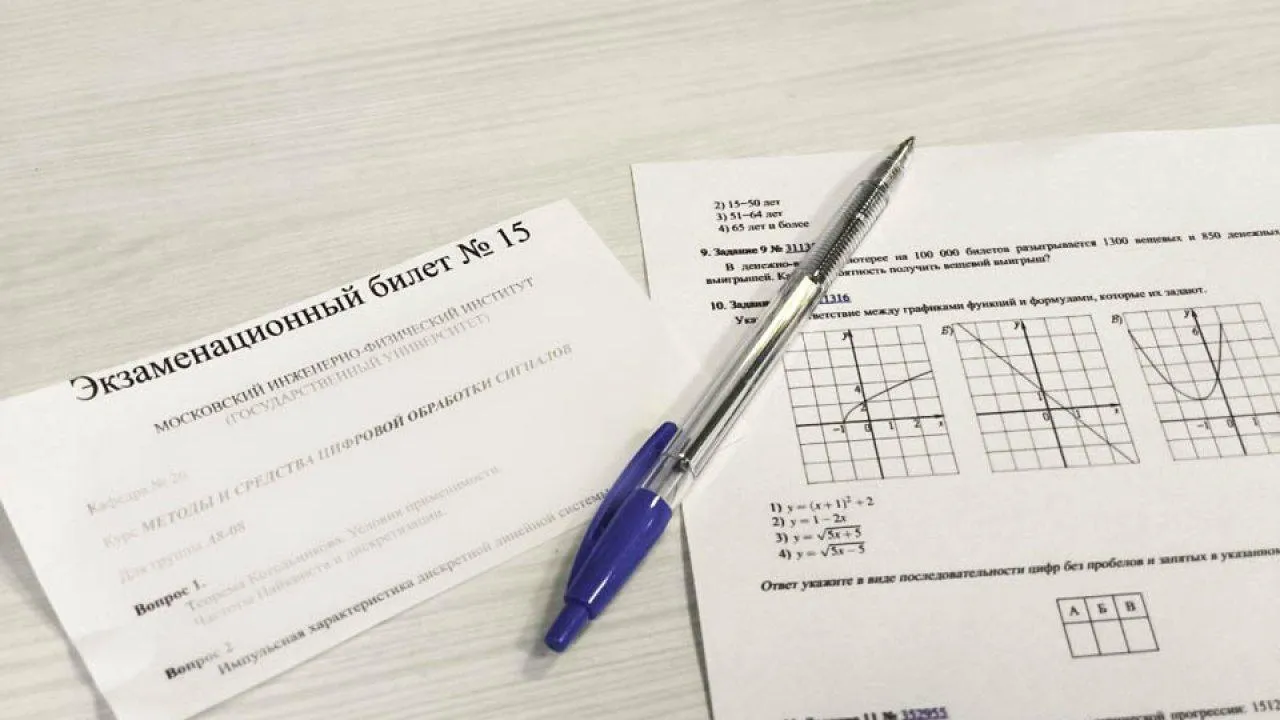 Экзаменационный билет № 15
МОСКОВСКИЙ ИНЖЕНЕРНО-ФИЗИЧЕСКИЙ ИНСТИТУТ
(ГОСУДАРСТВЕННЫЙ УНИВЕРСИТЕТ)
Кафедра № 26
Курс МЕТОДЫ И СРЕДСТВА ЦИФРОВОЙ ОБРАБОТКИ СИГНАЛОВ
Для группы А8-08
Вопрос 1.
Теорема Котельникова. Условия применимости.
Частоты Найквиста и дискретизации.
Вопрос 2
Импульсная характеристика дискретной линейной системы
2) 15–50 лет
3) 51–64 лет
4) 65 лет и более
9. Задание 9 №
В денежно- лотерее на 100 000 билетов разыгрывается 1300 вещевых и 850 денежных
выигрышей. получить вещевой выигрыш?
10. 1316
между графиками функций и формулами, которые их задают.
y
4
2
−1 0 1 2 x
Б)
y
1
0 1 x
В)
y
6
−1 0 1
1) y = (x + 1)² + 2
2) y = 1 − 2x
3) y = √5x + 5
4) y = √5x − 5
Ответ укажите в виде последовательности цифр без пробелов и запятых в
А Б В
11 № 352955
прогрессии: